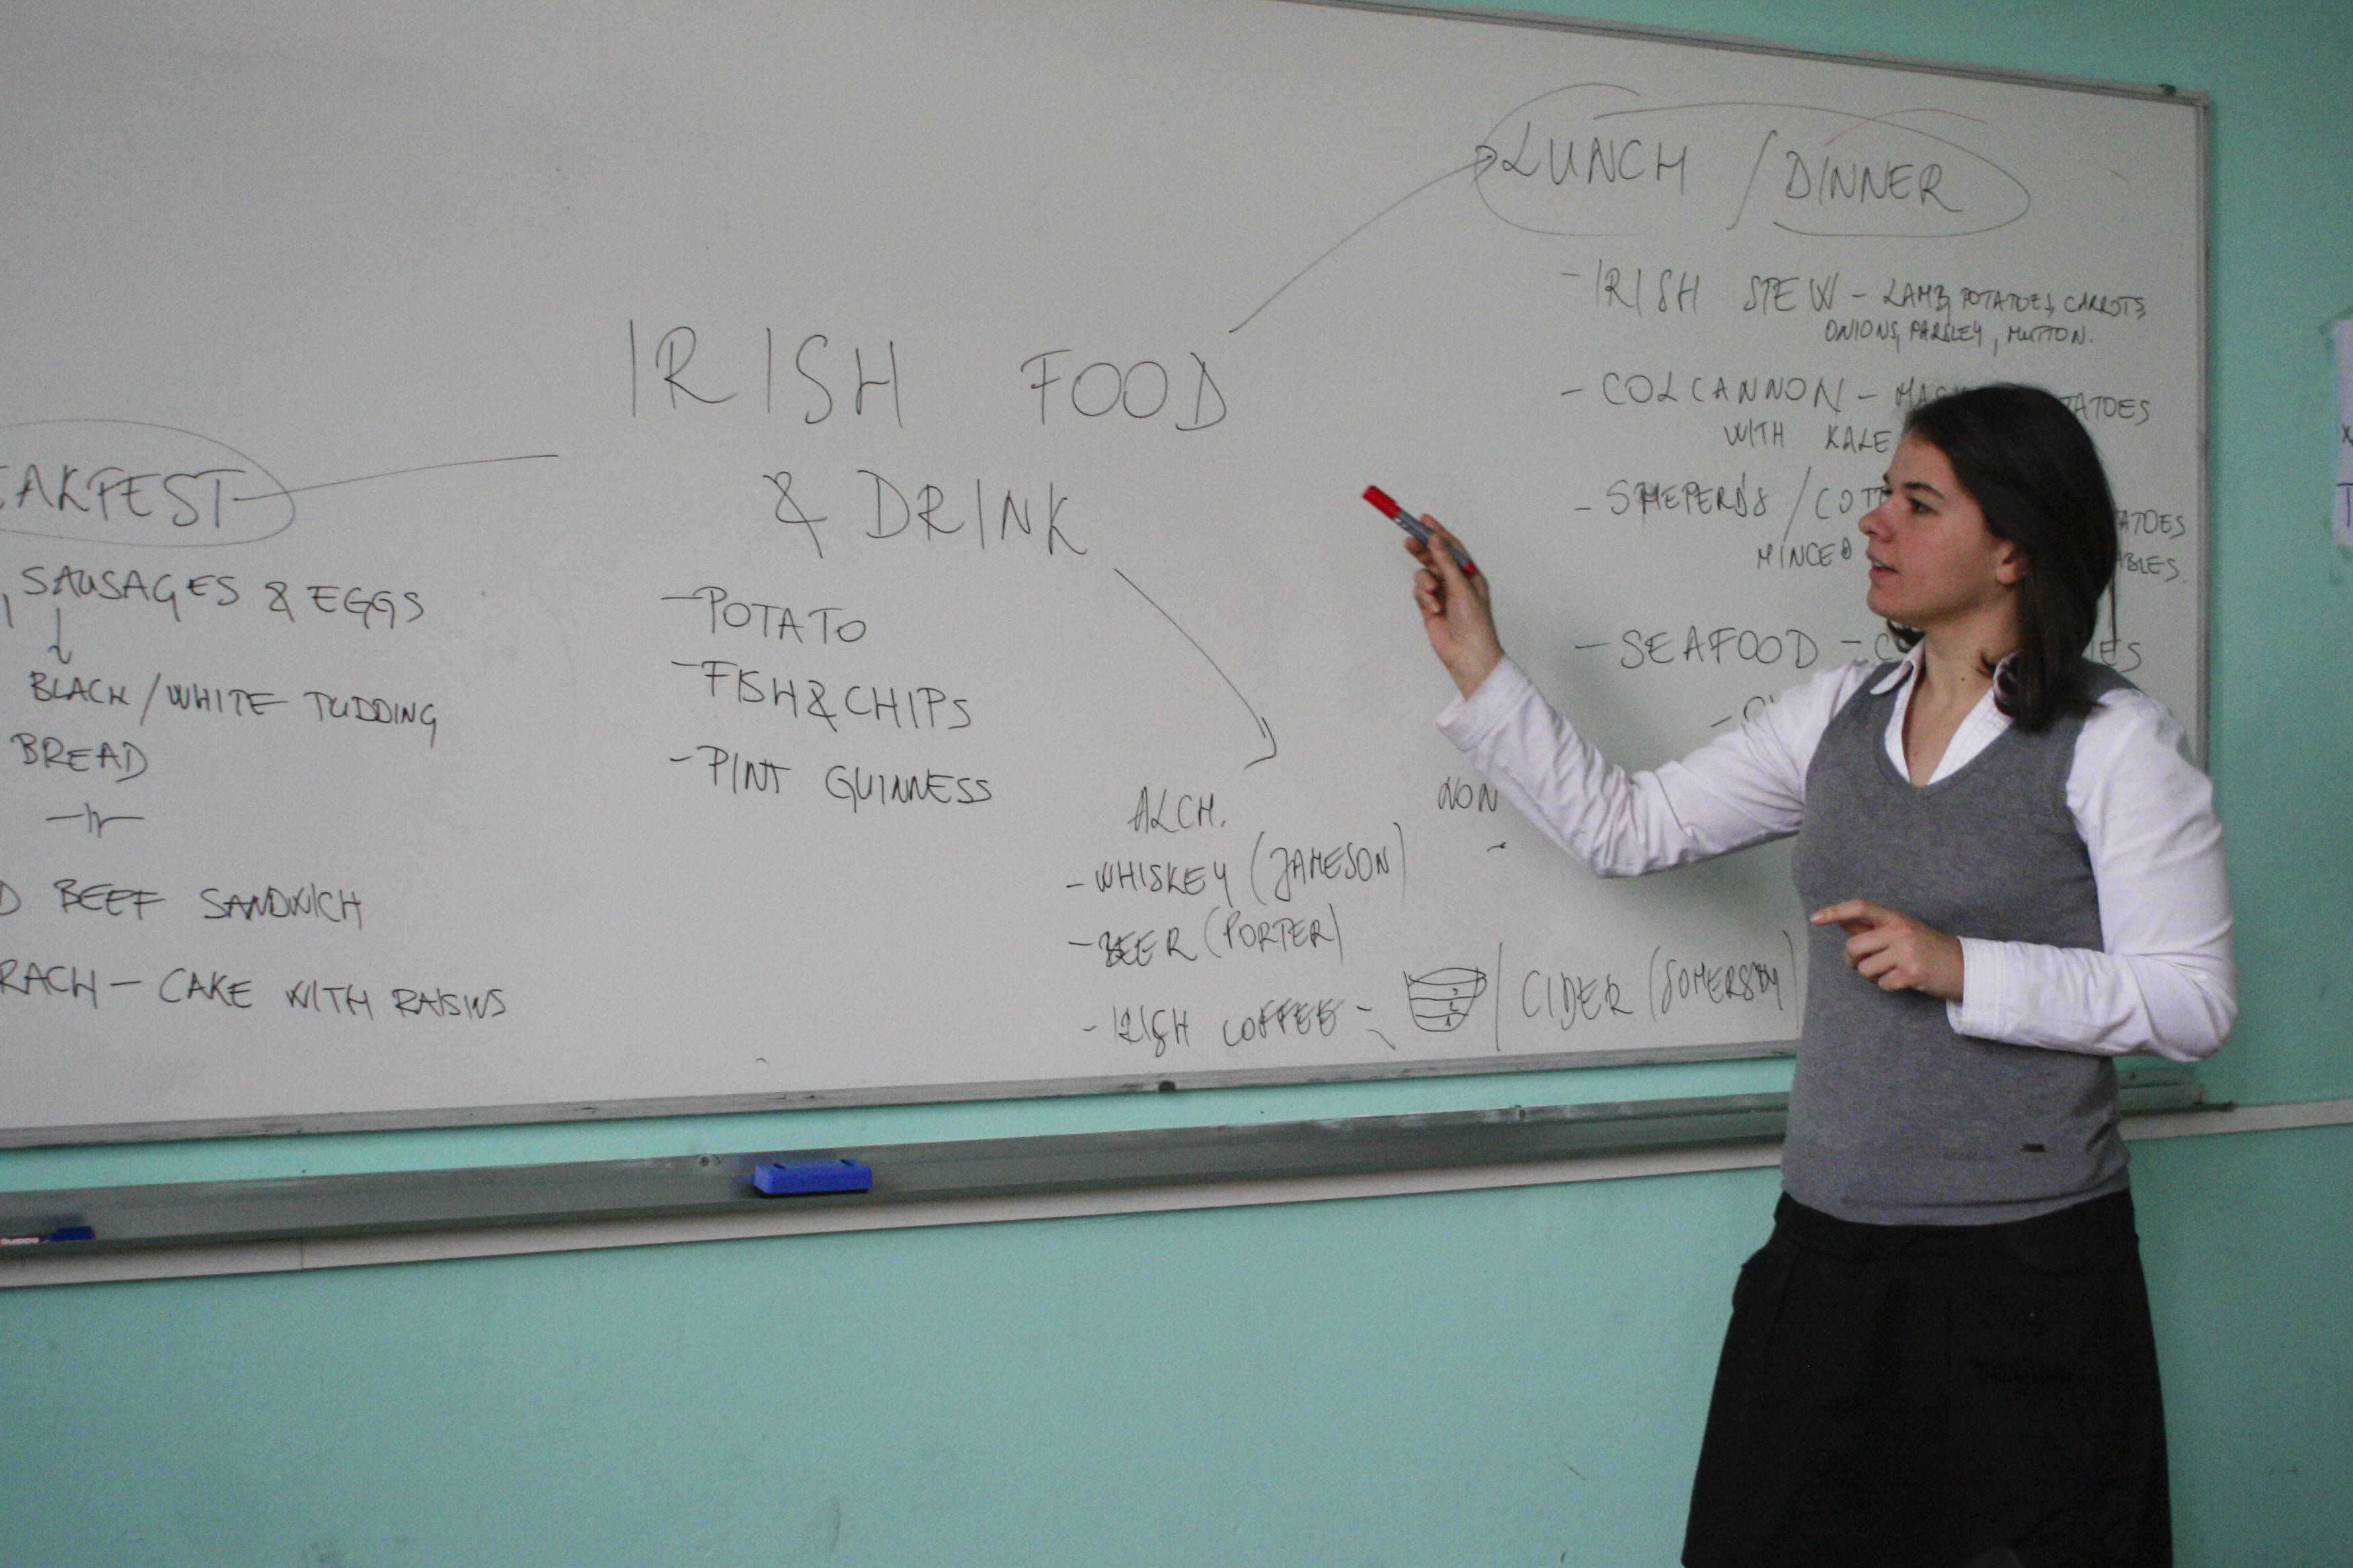 IRISH FOOD
& DRINK
- POTATO
- FISH & CHIPS
- PINT GUINNESS
EAKFEST
, SAUSAGES & EGGS
BLACK / WHITE PUDDING
BREAD
D BEEF SANDWICH
RACH - CAKE WITH RAISINS
LUNCH / DINNER
- IRISH STEW - LAMB, POTATOES, CARROTS,
ONIONS, PARSLEY, MUTTON.
- COLCANNON - MAS TATOES
WITH KALE
- SHEPERD'S / COTT ATOES
MINCED ABLES.
- SEAFOOD - C IES
ALCH.
- WHISKEY (JAMESON)
- BEER (PORTER)
- IRISH COFFEE - / CIDER (SOMERSBY)
NON
-